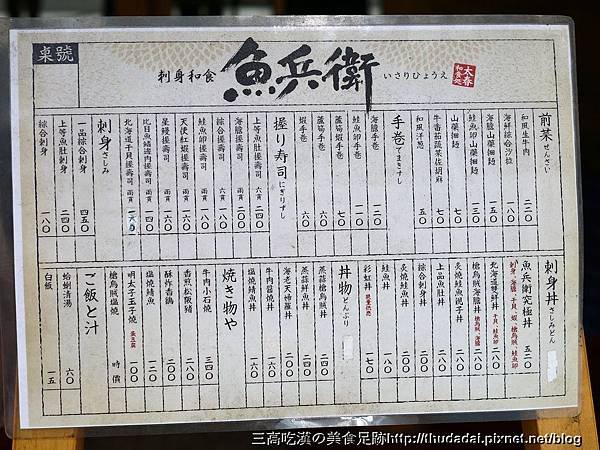 桌號
刺身和食
魚兵衛
いさりひょうえ
太春
和食処
前菜 ぜんさい
和風生牛肉 二二〇
海鮮綜合沙拉 一八〇
海膽山藥細麵 一五〇
鮭魚卵山藥細麵 一三〇
山藥細麵 七〇
牛番茄蔬菜佐胡麻 七〇
和風洋葱 五〇
手巻 てまきずし
海膽手卷 一二〇
鮭魚卵手卷 一一〇
蘆筍蝦手卷 七〇
蘆筍手卷 六〇
蝦手卷 六〇
握り寿司 にぎりずし
上等魚握壽司 六貫 二四〇
海膽握壽司 兩貫 二〇〇
綜合握壽司 六貫 一八〇
鮭魚卵握壽司 兩貫 一八〇
天使紅蝦握壽司 兩貫 一六〇
星鰻握壽司 兩貫 一六〇
比目魚鰭邊肉握壽司 兩貫 一四〇
北海道干貝握壽司 兩貫
刺身 さしみ
一品綜合刺身 四五〇
上等魚肚刺身 二四〇
綜合刺身 一八〇
刺身丼 さしみどん
魚兵衛究極丼 五二〇
刺身、海膽、干貝、蝦、槍烏賊、鮭魚卵
北海道雙鮮丼 干貝、鮭魚卵 二八〇
槍烏賊海膽丼 槍烏賊、海膽 二八〇
炙燒鮭魚親子丼 二八〇
上品魚肚丼 二八〇
綜合刺身丼 二二〇
炙燒鮭魚丼 二〇〇
鮭魚丼 一八〇
彩虹丼 限量供應 一七〇
丼物 どんぶり
蒸霜槍烏賊丼 二四〇
蒸霜鮮魚丼 二四〇
海老天婦羅丼 二〇〇
牛肉醬燒丼 一六〇
塩燒鯖魚丼 一六〇
焼き物や
牛肉小石燒 三四〇
香煎松阪豬 二八〇
酥炸香鍋 二〇〇
塩燒鯖魚 一二〇
明太子玉子燒 一〇〇
槍烏賊塩燒 時價
ご飯と汁
蛤蜊清湯 六〇
白飯 一五
三高吃漢の美食足跡http://thudadai.pixnet.net/blog